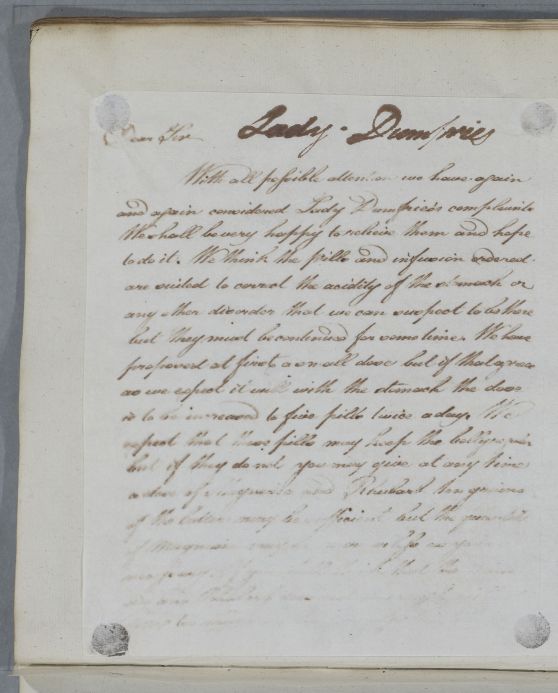 Dear Sir
Lady Dumfries
With all possible attention we have again
and again considered Lady Dumfries's complaints
We shall be very happy to relieve them and hope
to do it. We think the pills and infusion ordered
are suited to correct the acidity of the stomach or
any other disorder that we can suspect to be there
but they must be continued for some time. We have
proposed at first a small dose but if that agrees
as we expect it will with the stomach the dose
is to be increased to five pills twice a day. We
expect that these pills may keep the belly
but if they do not you may give at any time
a dose of Magnesia and Rhubarb ten grains
of the latter may be sufficient but the quantity
of Magnesia